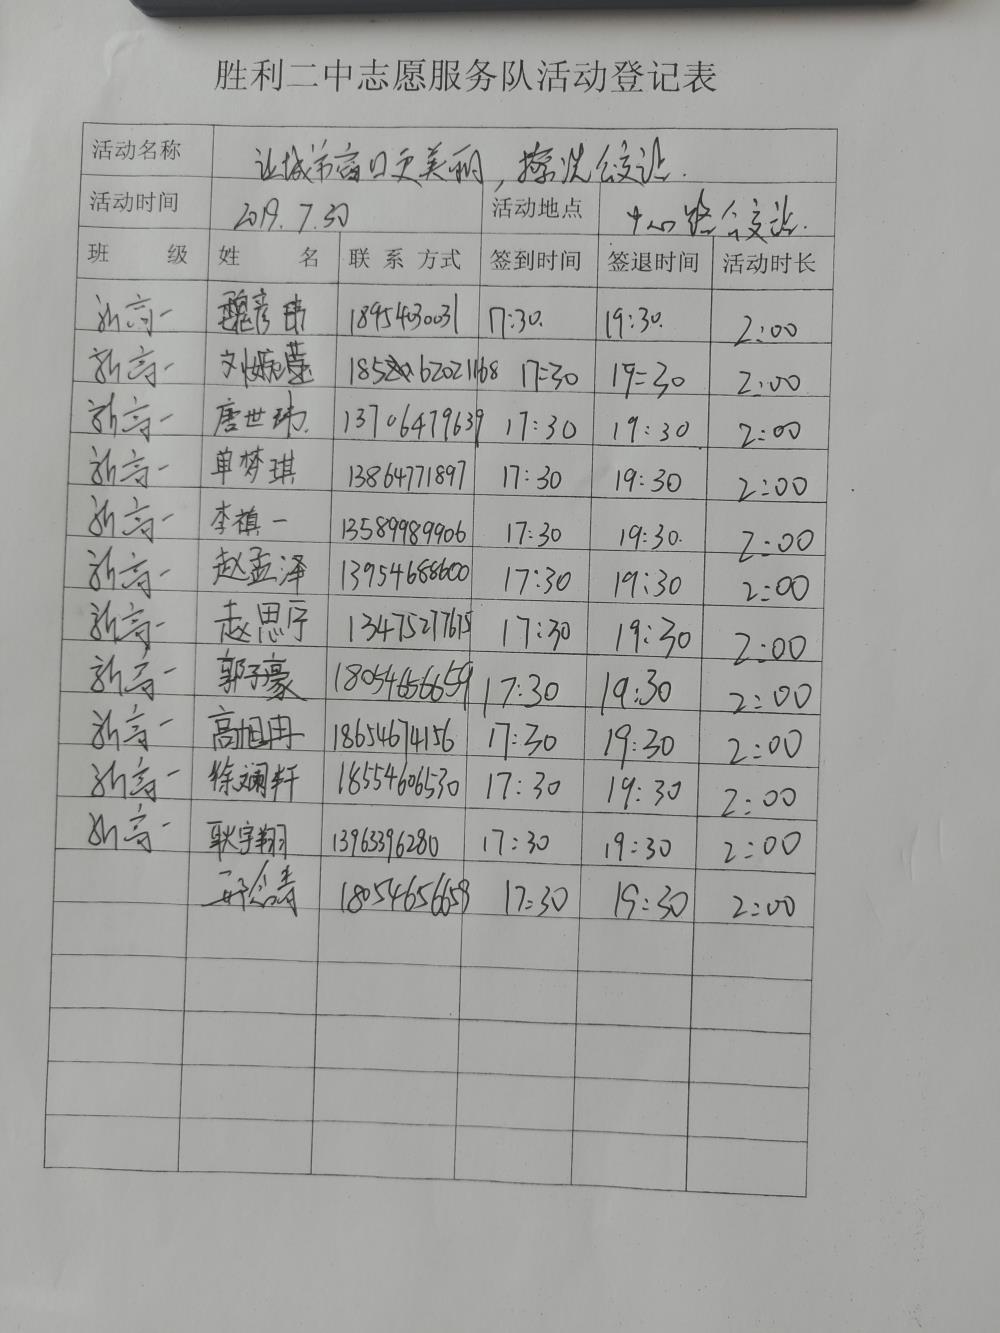 胜利二中志愿服务队活动登记表
活动名称 让城市窗口更美丽，擦洗公交站.
活动时间 2019.7.30 活动地点 中心路公交站.
班 级 姓 名 联 系 方式 签到时间 签退时间 活动时长
新高一 魏彦玮 18954030031 17:30. 19:30. 2:00
新高一 刘婉莹 17:30 19:30 2:00
新高一 唐世玮. 13706479639 17:30 19:30 2:00
新高一 单梦琪 13864771897 17:30 19:30 2:00
新高一 李禛一 13589989906 17:30 19:30. 2:00
新高一 赵孟泽 13954688600 17:30 19:30 2:00
新高一 赵思齐 13475277675 17:30 19:30 2:00
新高一 郭子豪 18054656659 17:30 19:30 2:00
新高一 高旭冉 18654674156 17:30 19:30 2:00
新高一 徐斓轩 18554606530 17:30 19:30 2:00
新高一 耿宇翔 13963396280 17:30 19:30 2:00
18054656659 17:30 19:30 2:00